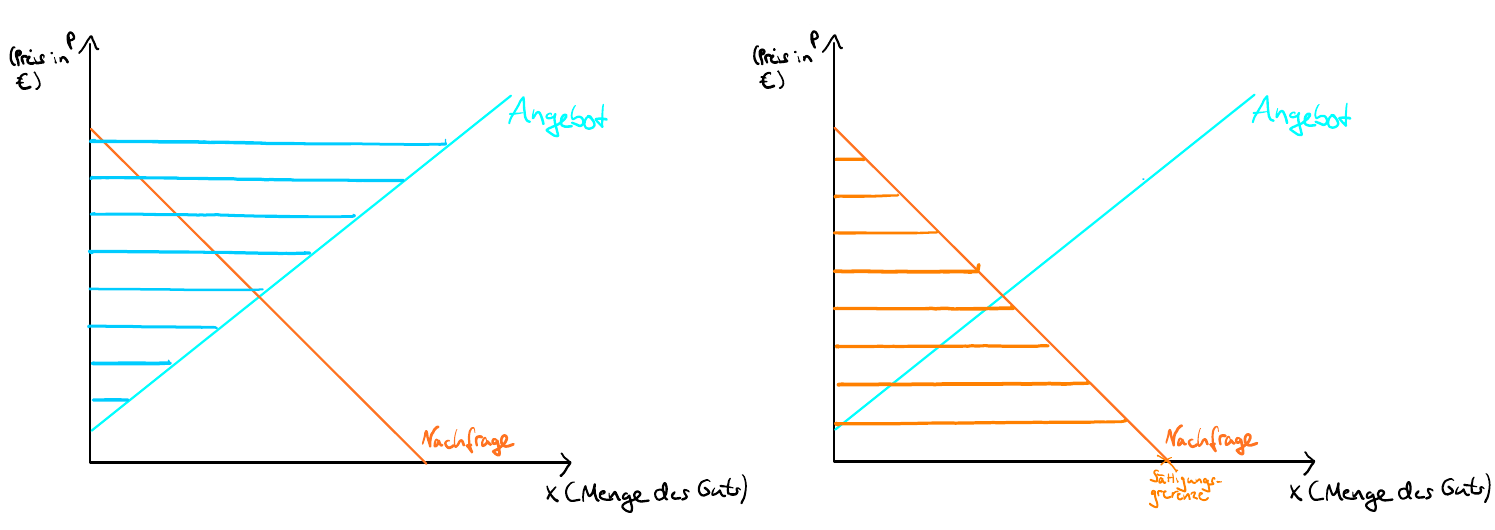 P
(Preis in
€)
Angebot
Nachfrage
x (Menge des Guts)
P
(Preis in
€)
Angebot
Nachfrage
Sättigungs-
grerenze
x (Menge des Guts)